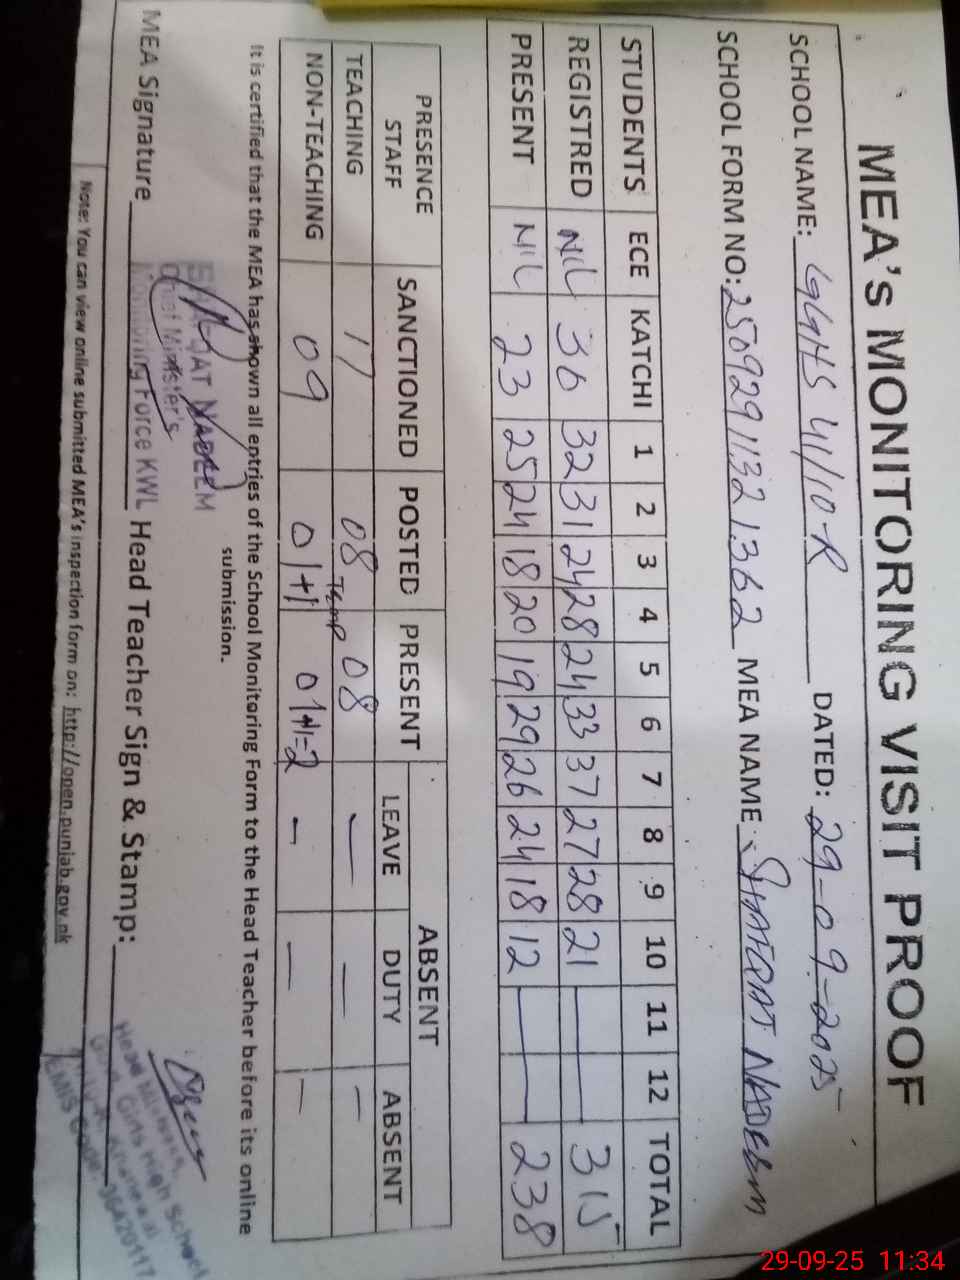 MEA's MONITORING VISIT PROOF
SCHOOL NAME: GGHS 41/10-R DATED: 29-09-2025
SCHOOL FORM NO: 2509291132 1362 MEA NAME: SHAFQAT NADEEM
STUDENTS ECE KATCHI 1 2 3 4 5 6 7 8 9 10 11 12 TOTAL
REGISTRED NIL 30 32 31 24 28 24 33 37 27 28 21 — — 315
PRESENT NIL 23 25 24 18 20 19 29 26 24 18 12 — — 238
PRESENCE STAFF SANCTIONED POSTED PRESENT ABSENT
LEAVE DUTY ABSENT
TEACHING 17 08 08 — — —
NON-TEACHING 09 01+1 Temp 01+1=2 — — —
It is certified that the MEA has shown all entries of the School Monitoring Form to the Head Teacher before its online
submission.
SHAFQAT NADEEM
Chief Minister's
Monitoring Force KWL
MEA Signature Head Teacher Sign & Stamp:
Head Mistress
Govt. Girls High School
Khanewal
EMIS Code:
Note: You can view online submitted MEA's inspection form on: http://open.punjab.gov.pk
29-09-25 11:34